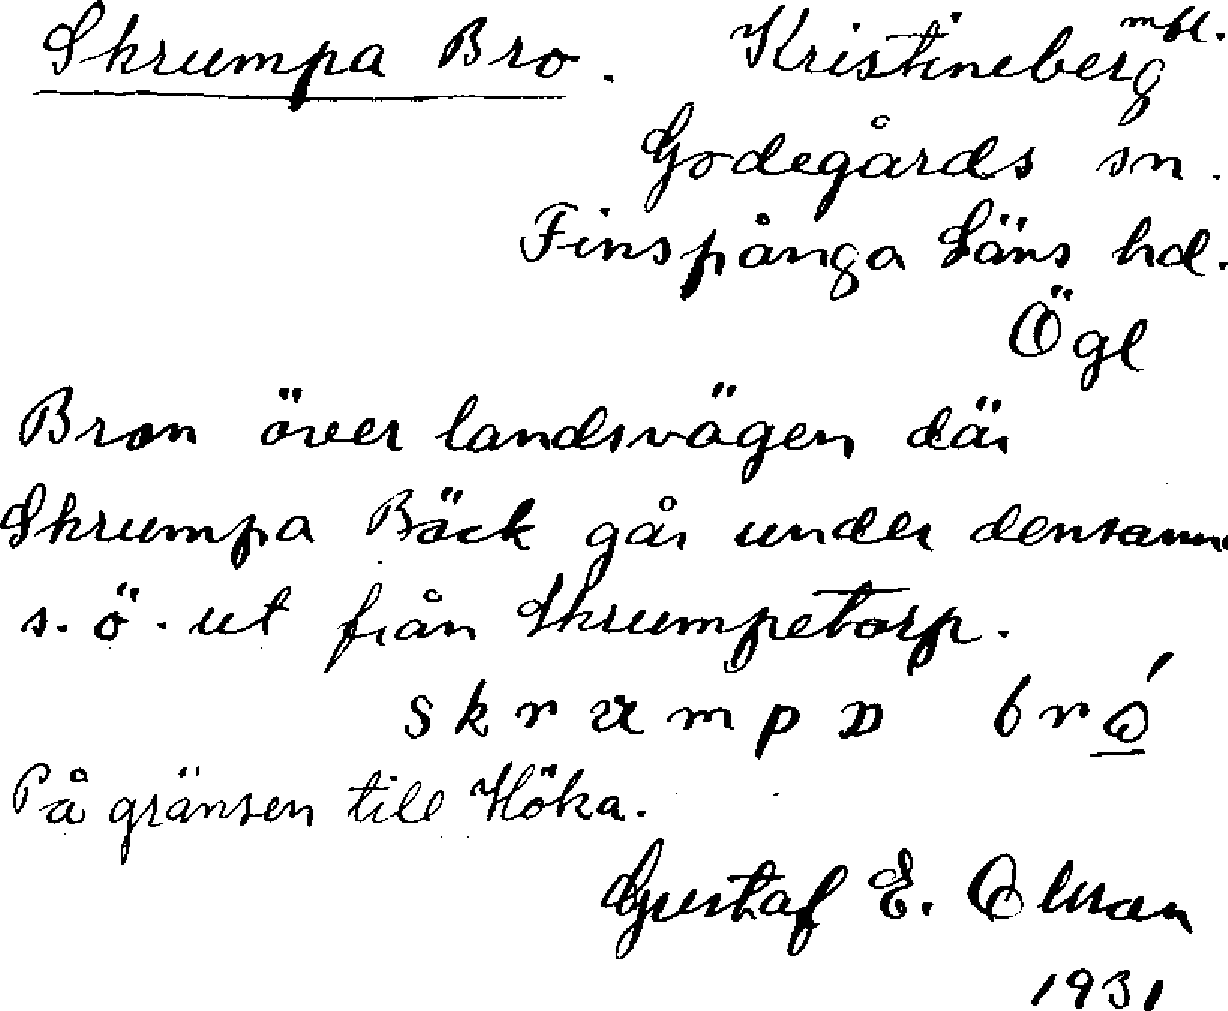 Skrumpa Bro. Kristineberg mbl.
Godegårds sn.
Finspånga Läns hd.
Ögl
Bron över landsvägen där
Skrumpa Bäck går under densamma
s. ö. ut från Skrumpetorp.
skrumpa bró
På gränsen till Höka.
Gustaf E.
1931